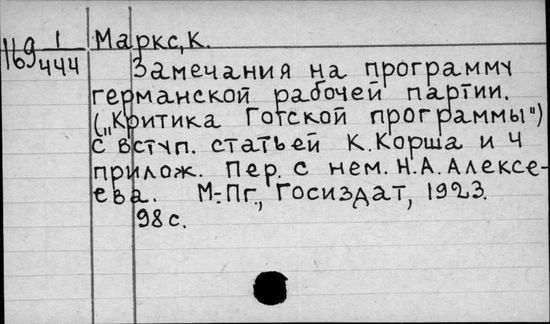 169 1/444
Маркс, К.
Замечания на программу
германской рабочей партии.
(„Критика Готской программы")
с вступ. статьей К. Корша и 4
прилож. Пер. с нем. Н.А. Алексе-
ева. М.-Пг., Госиздат, 1923.
98 с.